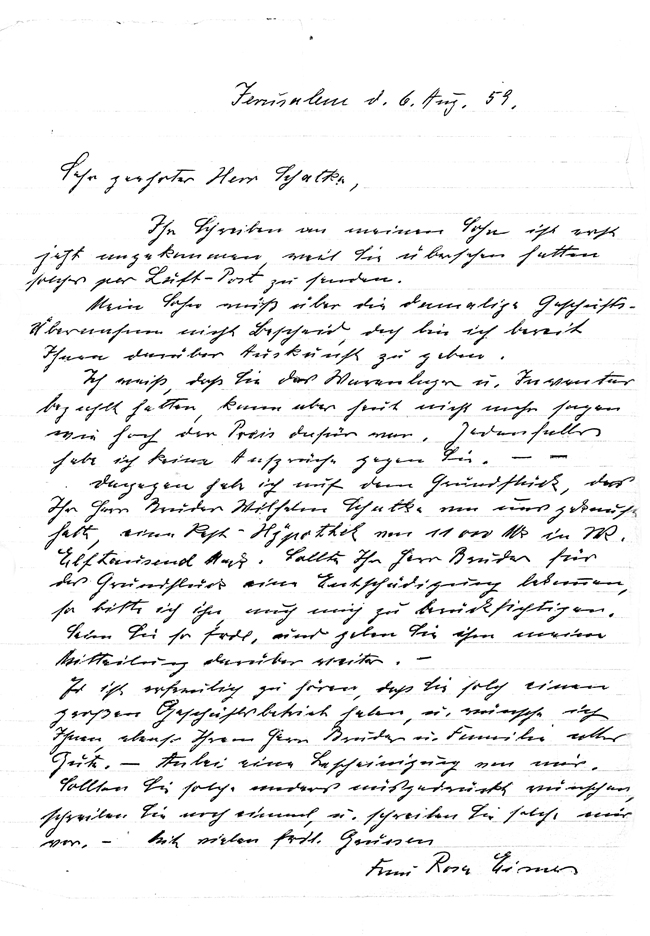 Jerusalem d. 6. Aug. 59.
Sehr geehrter Herr Schatka,
Ihr Schreiben an meinen Sohn ist erst
jetzt angekommen, weil Sie übersehen hatten
solches per Luft-Post zu senden.
Mein Sohn weiß über die damalige Geschäfts-
Übernahme nicht Bescheid, doch bin ich bereit
Ihnen darüber Auskunft zu geben.
Ich weiß, daß Sie das Warenlager u. Inventar
bezahlt hatten, kann aber heut nicht mehr sagen
wie hoch der Preis dafür war. Jedenfalls
habe ich keine Ansprüche gegen Sie. — —
Dagegen hab ich auf dem Grundstück, das
Ihr Herr Bruder Wilhelm Schatka von uns gekauft
hatte, eine Rest-Hypothek von 11000 Mk in W.
Elftausend Mark. Sollte Ihr Herr Bruder für
das Grundstück eine Entschädigung bekommen,
so bitte ich ihn auch mich zu berücksichtigen.
Seien Sie so frdl. und geben Sie ihm meine
Mitteilung darüber weiter. —
Es ist erfreulich zu hören, daß Sie solch einen
großen Geschäftsbetrieb haben, u. wünsche ich
Ihnen, ebenso Ihrem Herrn Bruder u. Familie alles
Gute. — Anbei eine Bescheinigung von mir.
Sollten Sie solche anders ausgedrückt wünschen,
schreiben Sie noch einmal, u. schreiben Sie solche mir
vor. — Mit vielen frdl. Grüssen
Frau Rosa